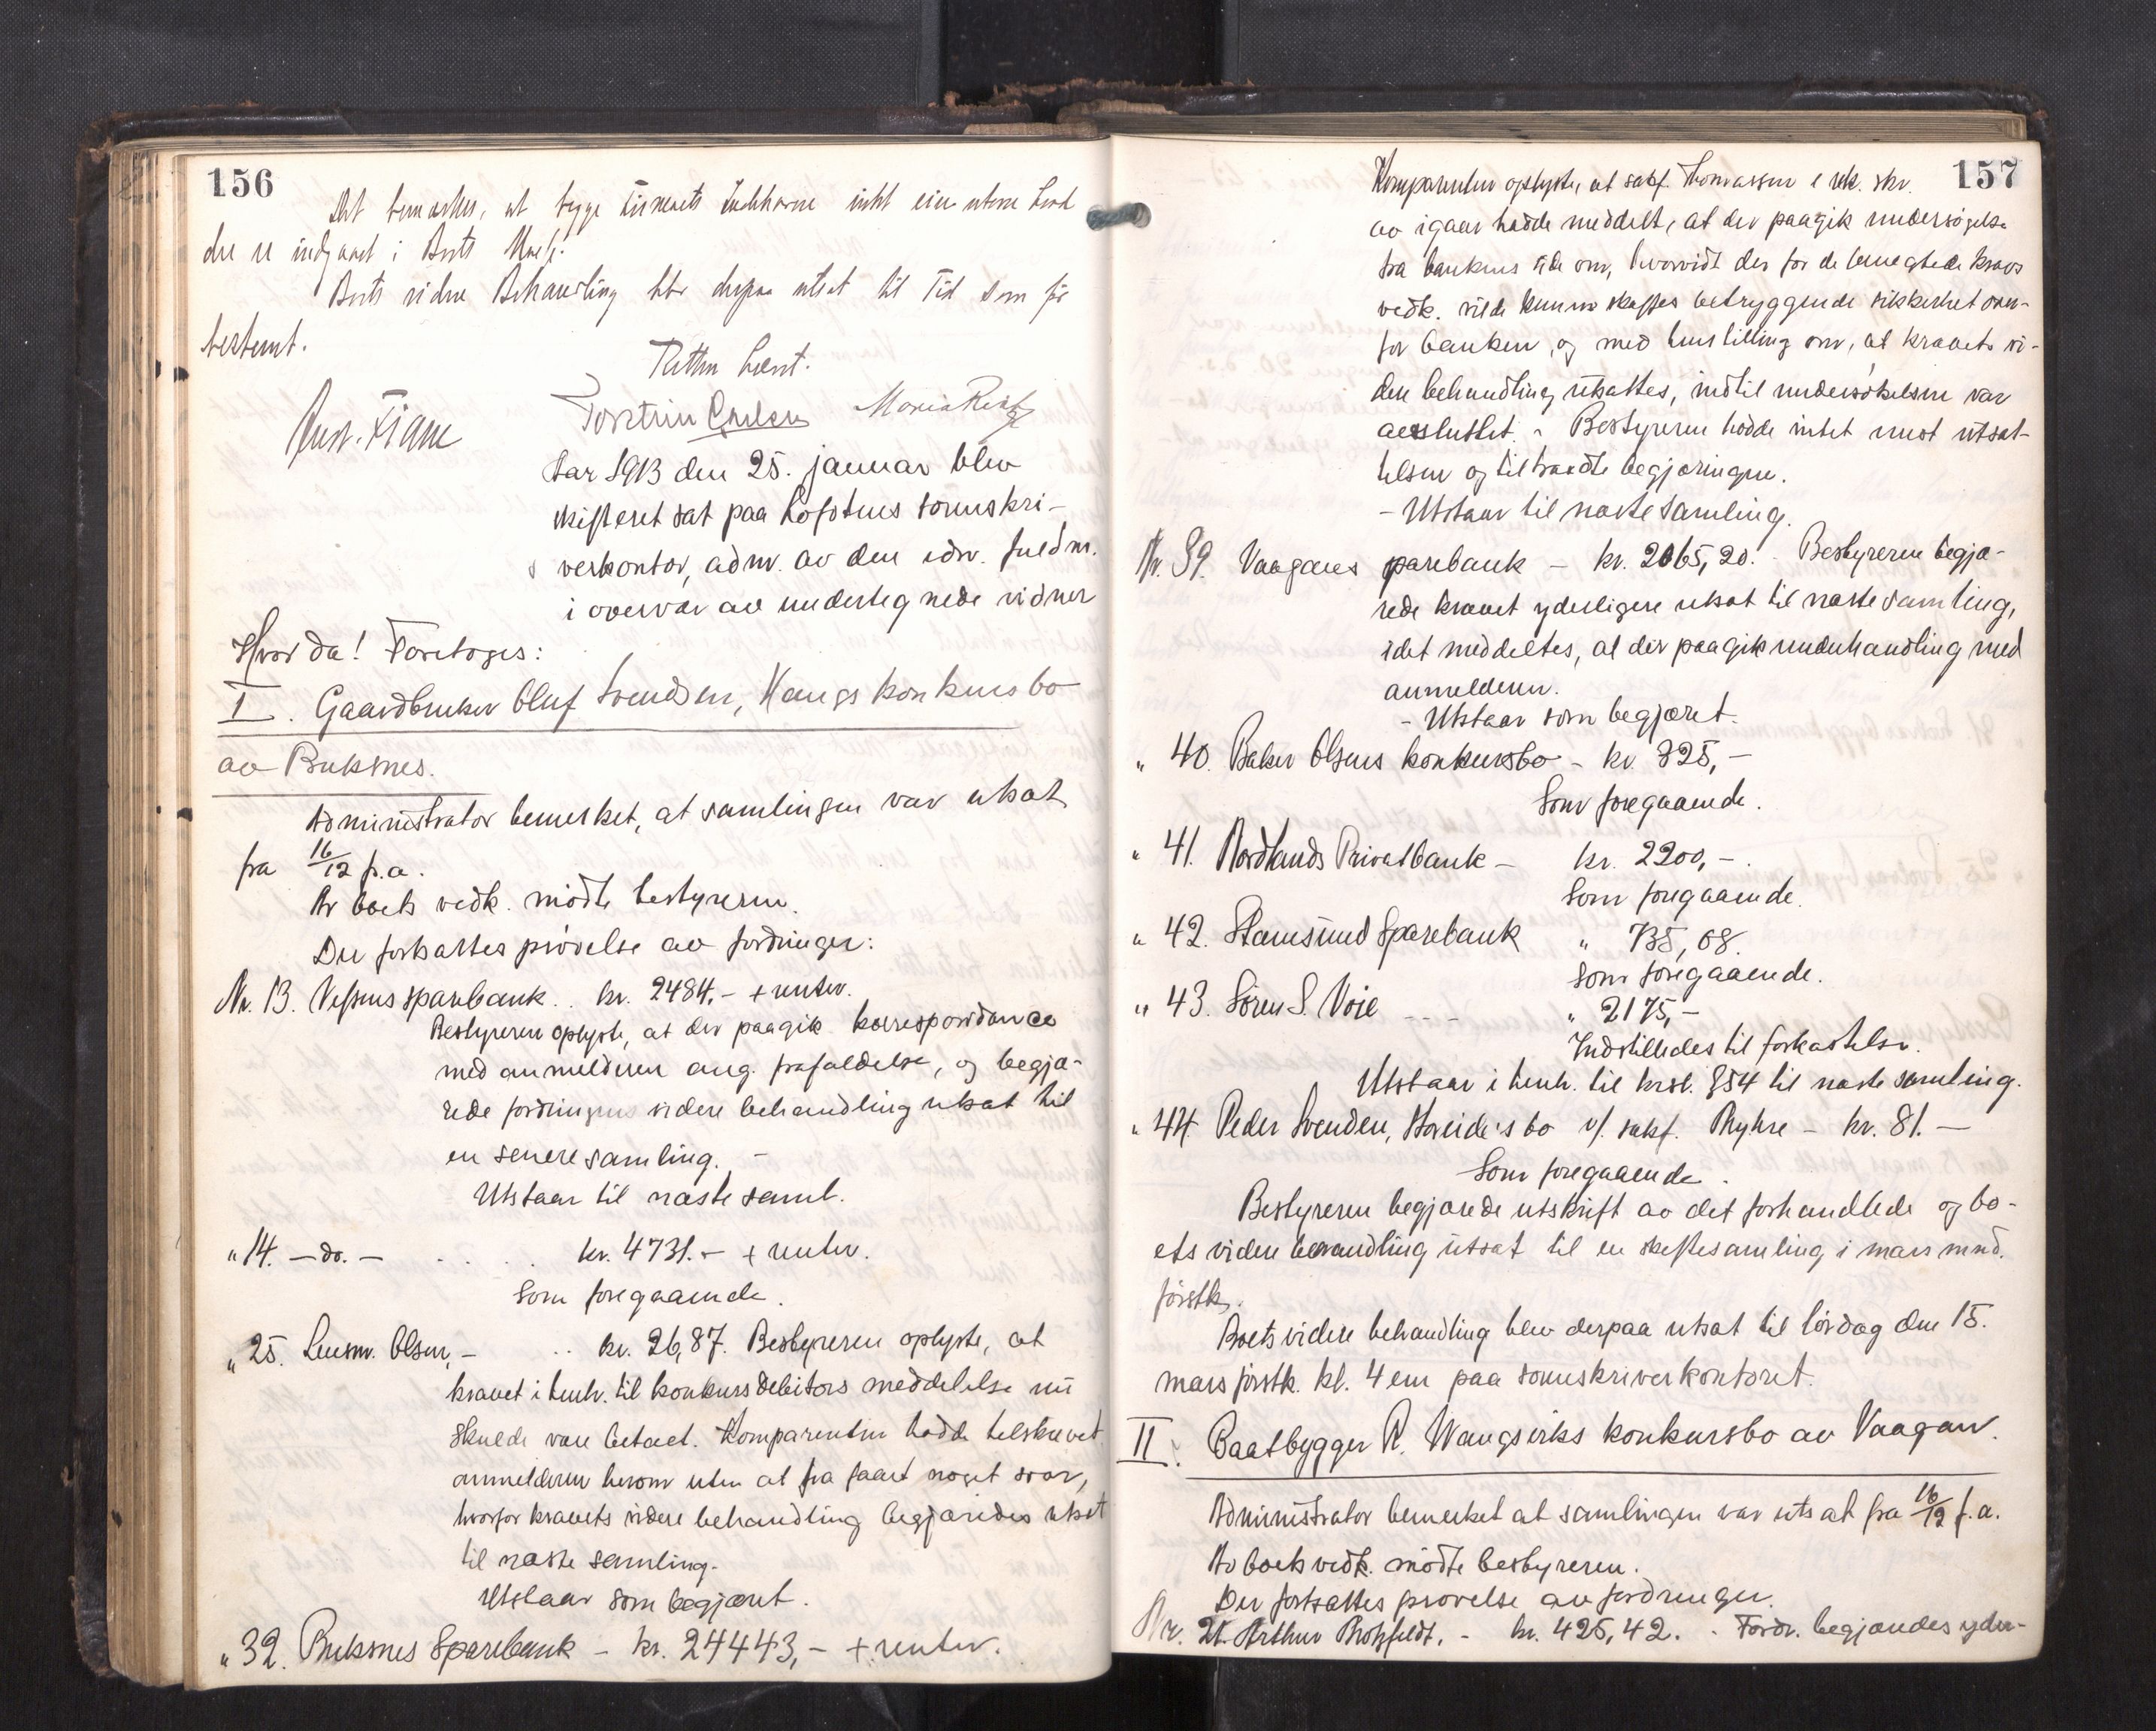 156
Det bemærkes, at begge intet eier utenom hvad
der er indgaaet i Boets
Boets videre Behandling blev derpaa utsat til Tid som før
bestemt.
Retten hævet.
Maria
Aar 1913 den 25. januar blev
skifteret sat paa Lofotens sorenskri-
verkontor, adm. av den edsv. fuldm.
i overvær av undertegnede vidner
Hvor da! Foretoges:
I. Gaardbruker Oluf Svendsen, Haugs konkursbo
av Buksnes.
Administrator bemerket, at samlingen var utsat
fra 16/12 f.a.
Av boets vedk. mødte bestyreren.
Der fortsattes prøvelse av fordringer:
Nr. 13. Vefsens sparebank .. kr. 2484,- + renter.
Bestyreren oplyste, at der paagik korrespondance
med anmelderen ang. frafaldelse, og begjæ-
rede fordringens videre behandling utsat til
en senere samling. -
Utstaar til næste saml.
" 14. - do. - . . . . kr. 4731.- + renter.
Som foregaaende.
" 25. Lensm. Olsen, - .. kr. 26,87. Bestyreren oplyste, at
kravet i henh. til konkursdebitors meddelelse nu
skulde være betalt. Komparenten hadde tilskrevet
anmelderen herom uten at ha faaet noget svar,
hvorfor kravets videre behandling begjæredes utsat
til næste samling.
Utstaar som begjæret.
" 32. Buksnes Sparebank - kr. 24443,- + renter.
157
Komparenten oplyste, at sakf. Thomassen i rek. skr.
av igaar hadde meddelt, at der paagik undersøgelse
fra bankens side om, hvorvidt der for de benegtede kravs
vedk. vilde kunne skaffes betryggende sikkerhet over-
for banken, og med henstilling om, at kravets vi-
dere behandling utsattes, indtil undersøkelsen var
avsluttet. - Bestyreren hadde intet imot utsæt-
telsen og tiltraadte begjæringen.
- Utstaar til næste samling.
Nr. 39. Vaagans sparebank - kr. 2065,20. - Bestyreren begjæ-
rede kravet yderligere utsat til næste samling,
idet meddeltes, at der paagik underhandling med
anmelderen.
- Utstaar som begjæret.
" 40. Baker Olsens konkursbo - kr. 325,-
Som foregaaende.
" 41. Nordlands Privatbank - kr. 2200,-.
Som foregaaende.
" 42. Stamsund Sparebank " 735,08.
Som foregaaende.
" 43. Søren S. Voie - - - " 2175,-
Indstilledes til forkastelse.
Utstaar i henh. til krsl. § 54 til næste samling.
" 44. Peder Svendsen, Hoveide's bo v/ sakf. Rhyhre - kr. 81.-
Som foregaaende.
Bestyreren begjærede utskrift av det forhandlede og bo-
ets videre behandling utsat til en skiftesamling i mars mnd.
førstk.
Boets videre behandling blev derpaa utsat til lørdag den 15.
mars førstk. kl. 4 em paa sorenskriverkontoret.
II. Baatbygger R. Wangsviks konkursbo av Vaagan.
Administrator bemerket at samlingen var utsat fra 16/12 f.a.
Av boets vedk. mødte bestyreren.
Der fortsattes prøvelse av fordringer.
Nr. 21. Arthur - kr. 425,42. - Fordr. begjæredes yder-